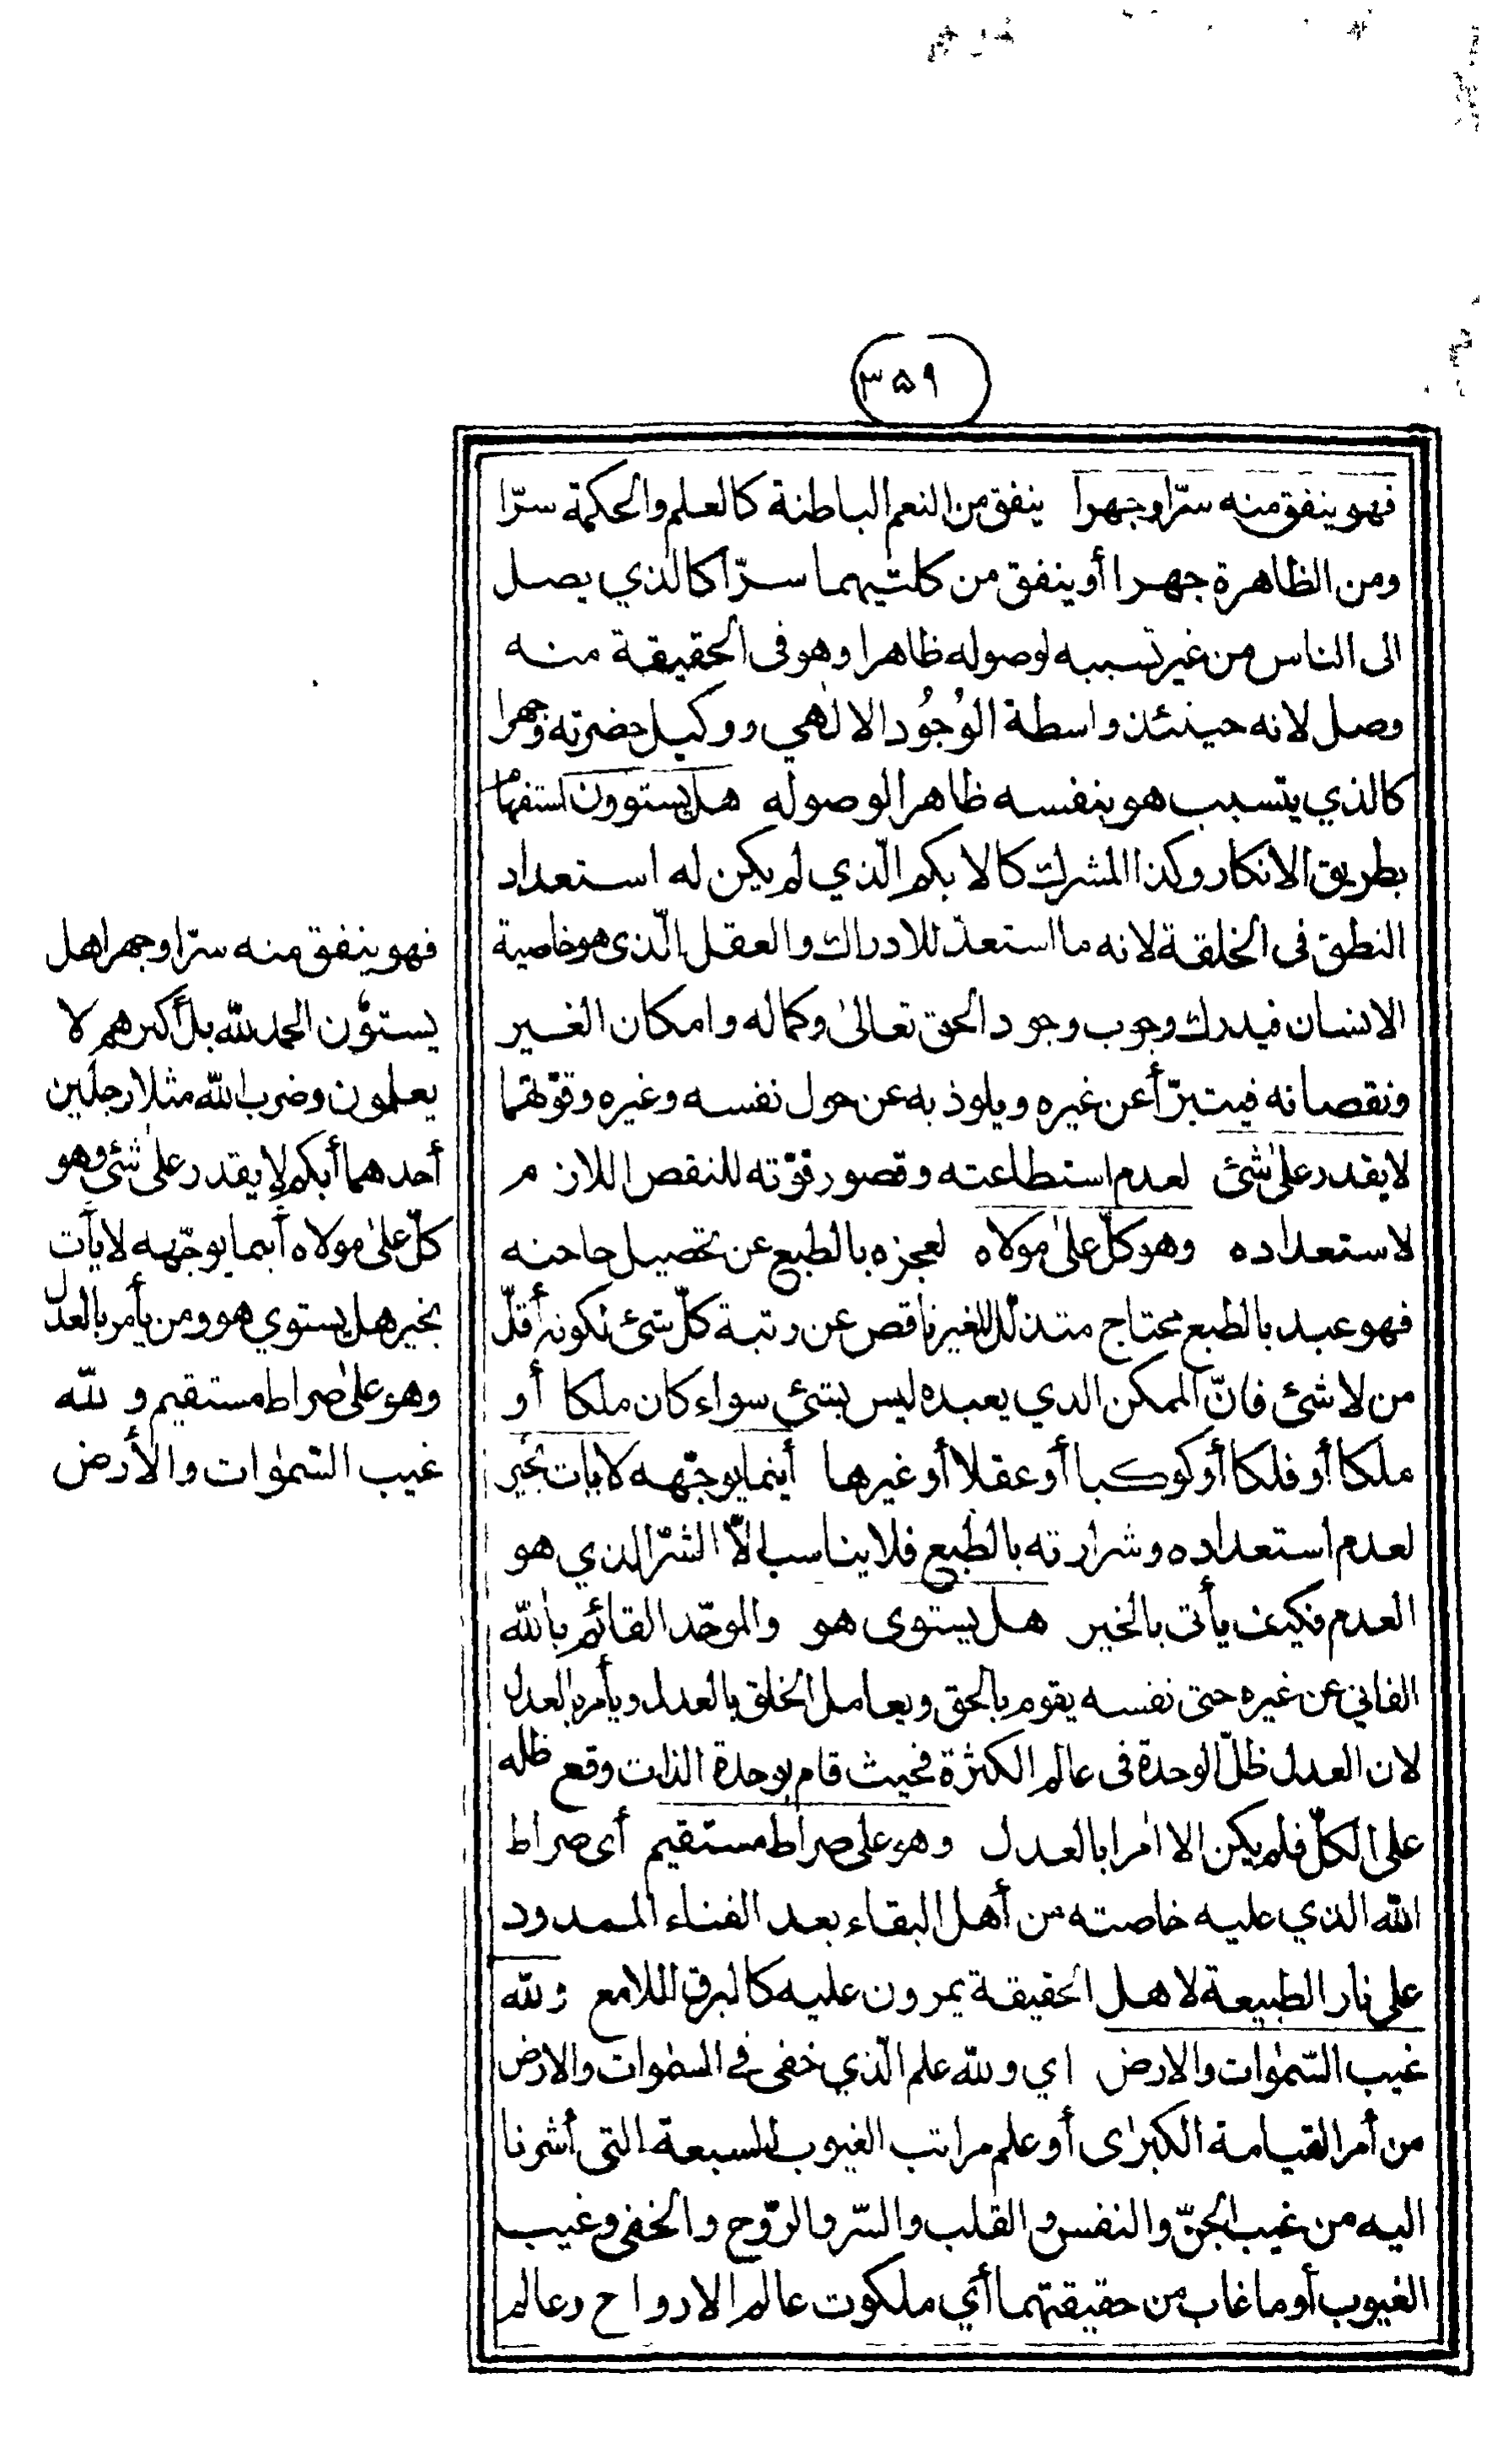 ٣٥٩
فهو ينفق منه سرّا وجهرا ينفق من النعم الباطنة كالعلم والحكمة سرّا
ومن الظاهرة جهرا أو ينفق من كلتيهما سرّا كالذي يصل
الى الناس من غير تسببه لوصوله ظاهرا وهو فى الحقيقة منه
وصل لانه حينئذ واسطة الوُجُود الالٰهي ووكيل حضرته وجهرا
كالذي يتسبب هو بنفسه ظاهرا لوصوله هل يستوون استفهام
بطريق الانكار وكذا المشرك كالابكم الّذي لم يكن له استعداد
النطق فى الخلقة لانه ما استعدّ للادراك والعقل الّذى هو خاصية
الانسان فيدرك وجوب وجود الحق تعالىٰ وكماله وامكان الغير
ونقصانه فيتبرّأ عن غيره ويلوذ به عن حول نفسه وغيره وقوّتهما
لا يقدر علىٰ شئ لعدم استطاعته وقصور قوّته للنقص اللازم
لاستعداده وهو كلّ علىٰ مولاه لعجزه بالطبع عن تحصيل حاجته
فهو عبد بالطبع محتاج متذلّل للغير ناقص عن رتبة كلّ شئ لكونه أقلّ
من لا شئ فانّ الممكن الذي يعبده ليس بشئ سواء كان ملكا أو
ملكا أو فلكا أو كوكبا أو عقلا أو غيرها أينما يوجّهه لا يات بخير
لعدم استعداده وشرارته بالطبع فلا يناسب الّا الشرّ الذي هو
العدم فكيف يأتى بالخير هل يستوى هو والموحّد القائم بالله
الفاني عن غيره حتى نفسه يقوم بالحق ويعامل الخلق بالعدل ويأمر بالعدل
لان العدل ظلّ الوحدة فى عالم الكثرة فحيث قام بوحدة الذات وقع ظله
على الكلّ فلم يكن الا امرا بالعدل وهو على صراط مستقيم أى صراط
الله الذي عليه خاصته من أهل البقاء بعد الفناء الممدود
على نار الطبيعة لاهل الحقيقة يمرون عليه كالبرق اللامع ولله
غيب السّمٰوات والارض اي ولله علم الّذي خفى في السمٰوات والارض
من أمر القيامة الكبرٰى أو علم مراتب الغيوب السبعة التى أشرنا
اليه من غيب الجنّ والنفس والقلب والسّر والرّوح والخفى وغيب
الغيوب أو ما غاب من حقيقتهما أي ملكوت عالم الارواح وعالم
فهو ينفق منه سرّا وجهرا هل
يستوٗن الحمد لله بل أكثرهم لا
يعلمون وضرب الله مثلا رجلين
أحدهما أبكم لا يقدر علىٰ شئ وهو
كلّ علىٰ مولاه أينما يوجّهه لا يأت
بخير هل يستوي هو ومن يأمر بالعدل
وهو علىٰ صراط مستقيم و لله
غيب السّمٰوات والأرض